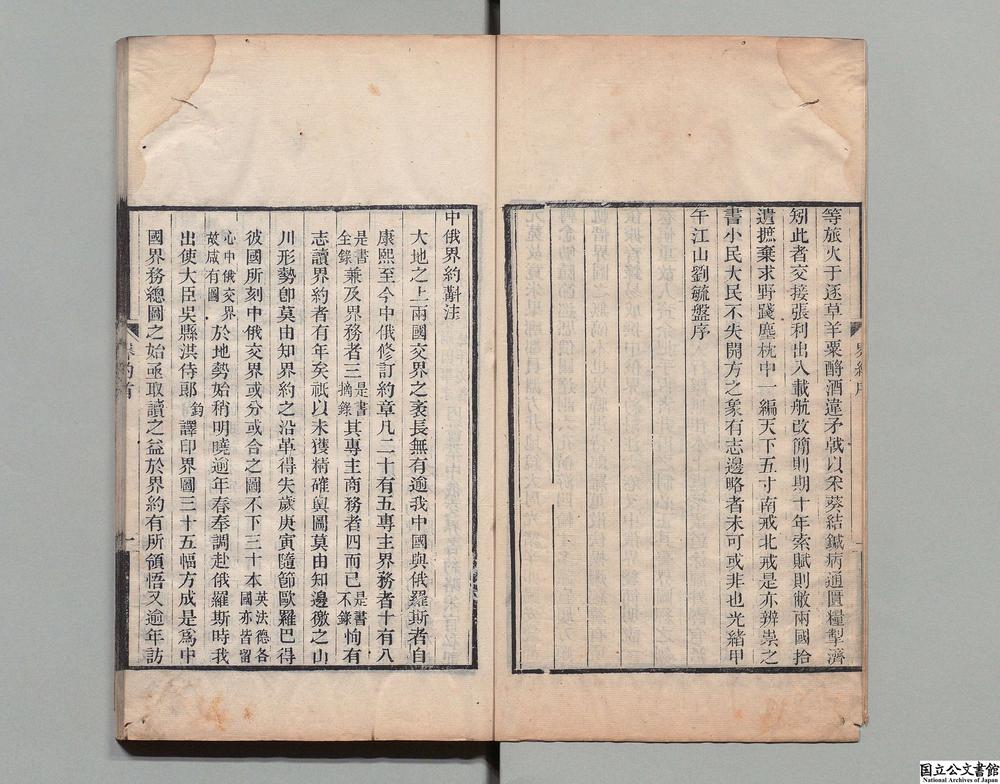 等旅火于逐草羊粟酹酒違矛戟以采葵結鍼病通匱糧掣濟
矧此者交接張利出入載航改簡則期十年索賦則敝兩國拾
遺摭棄求野踐塵枕中一編天下五寸南戒北戒是亦辨祟之
書小民大民不失開方之象有志邊略者未可或非也光緒甲
午江山劉毓盤序
界約序
一
中俄界約斠注
大地之上兩國交界之袤長無有逾我中國與俄羅斯者自
康熙至今中俄修訂約章凡二十有五專主界務者十有八
是書全錄兼及界務者三是書摘錄其專主商務者四而已是書不錄恂有
志讀界約者有年矣祇以未獲精確輿圖莫由知邊徼之山
川形勢卽莫由知界約之沿革得失歲庚寅隨節歐羅巴得
彼國所刻中俄交界或分或合之圖不下三十本英法德各國亦皆留
心中俄交界故咸有圖於地勢始稍明曉逾年春奉調赴俄羅斯時我
出使大臣吳縣洪侍郎鈞譯印界圖三十五幅方成是爲中
國界務總圖之始亟取讀之益於界約有所領悟又逾年訪
界約首
一
国立公文書館
National Archives of Japan